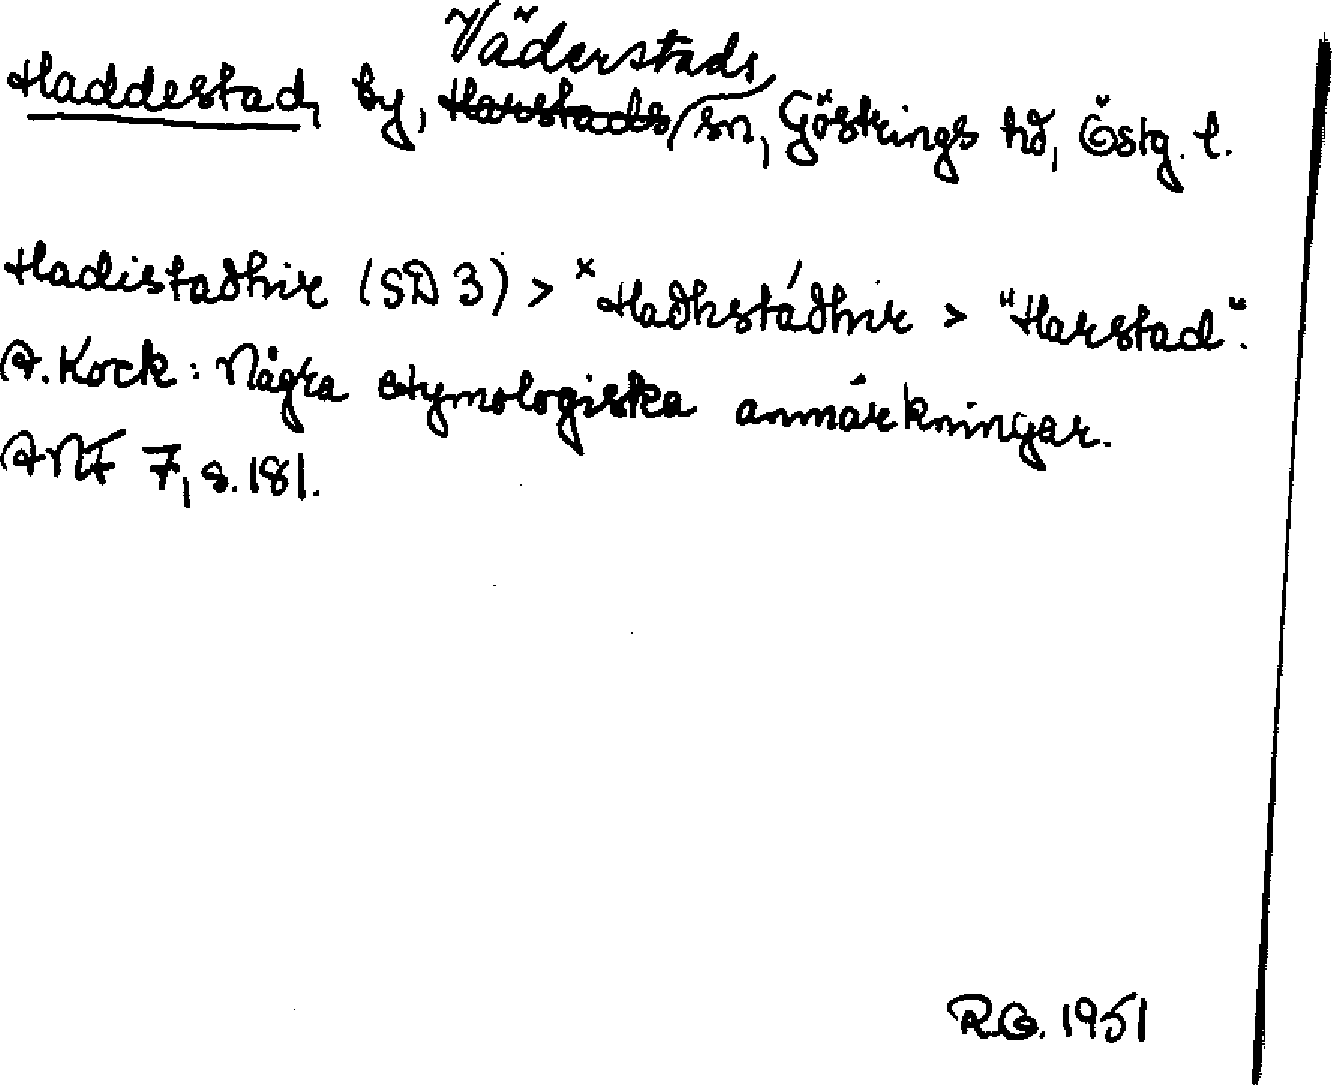 Väderstads
Haddestad, by, Harstads sn, Göstrings hd, Östg. l.
Hadistadhir (SD 3) > *Hadhstádhir > "Harstad".
A. Kock: Några etymologiska anmärkningar.
ANF 7, s. 181.
R.G. 1951